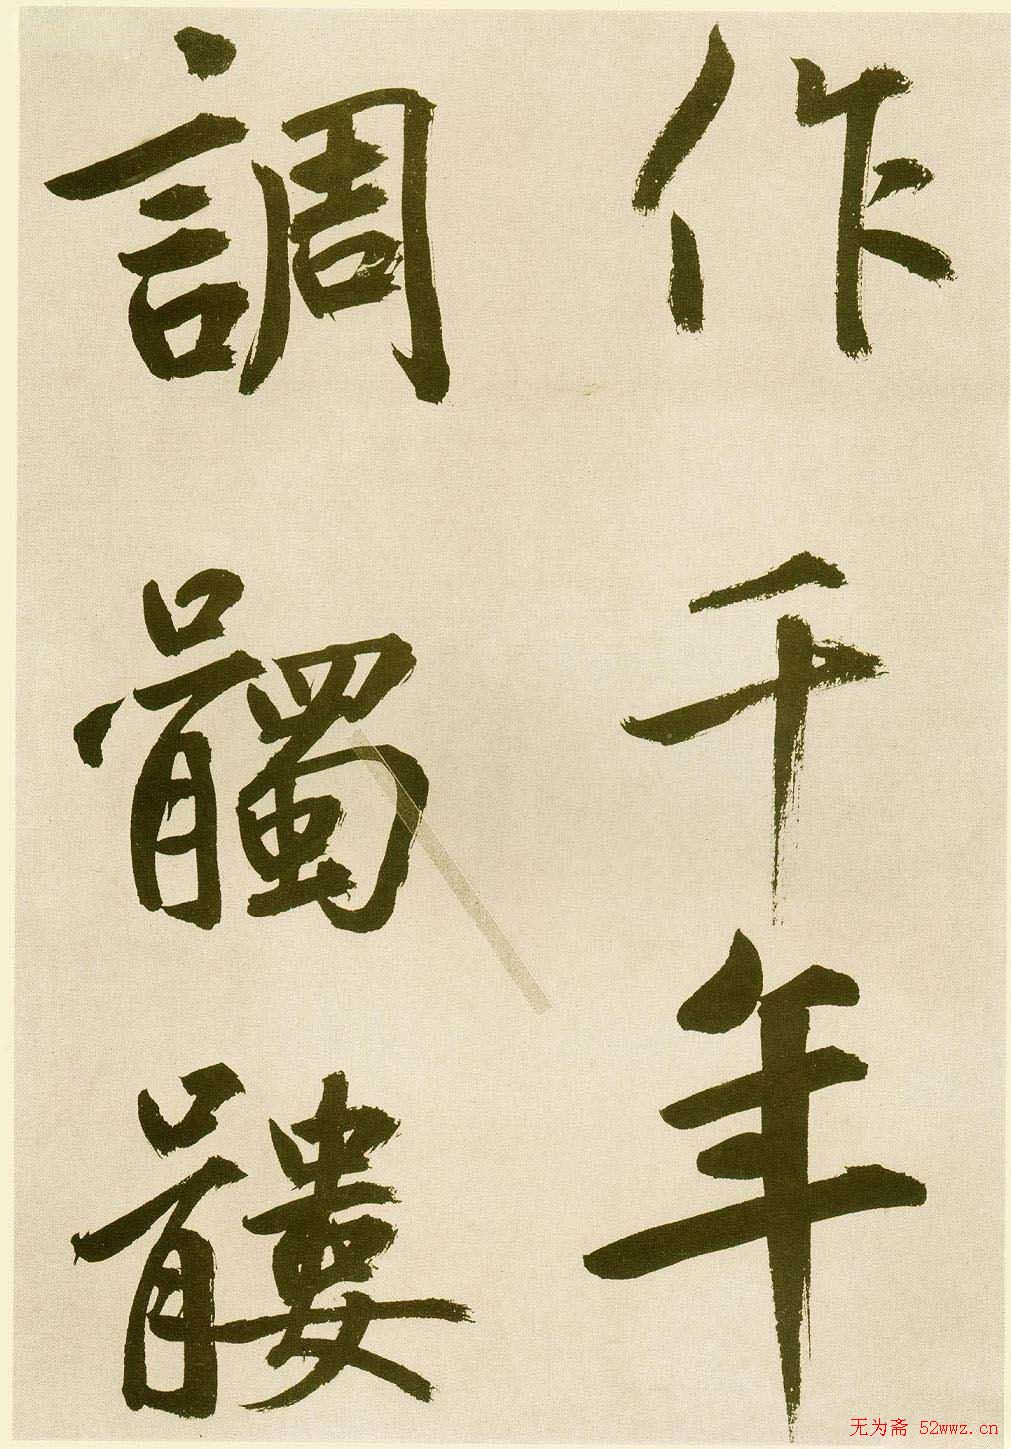 作千年
調髑髏
无为斋 52wwz.cn